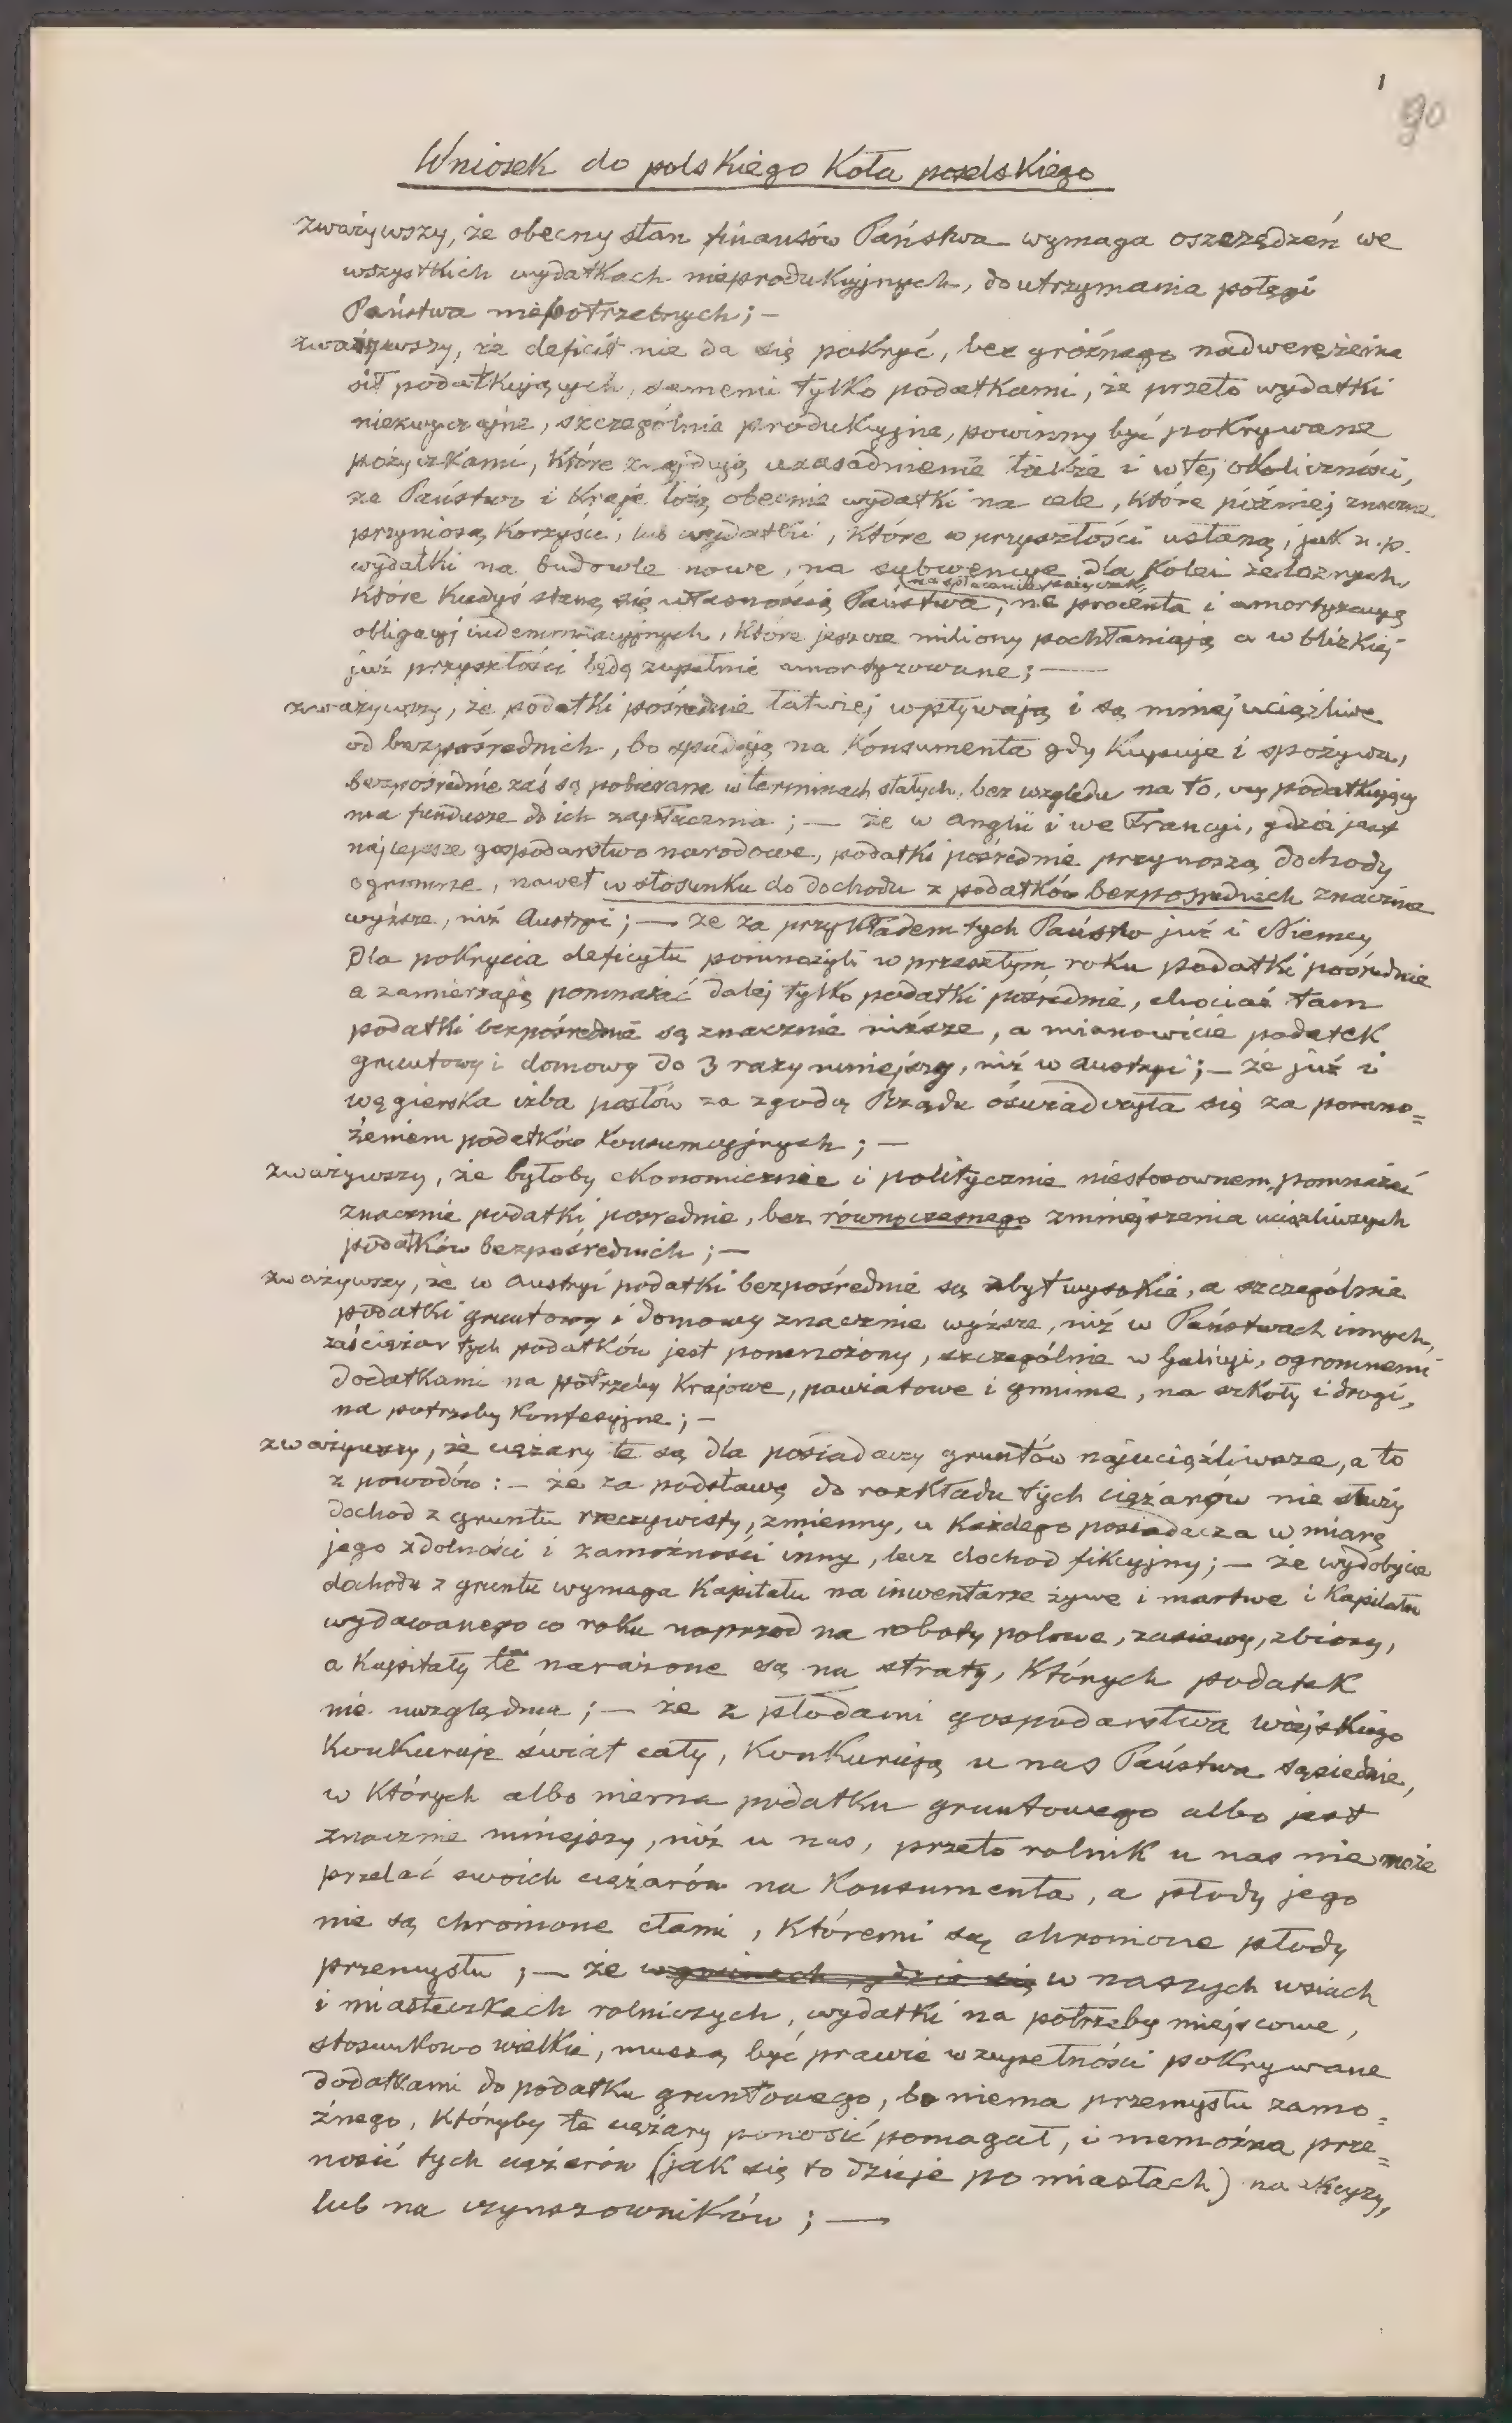 1
90
Wniosek do polskiego Koła poselskiego
zważywszy, że obecny stan finansów Państwa wymaga oszczędzeń we
wszystkich wydatkach nieprodukcyjnych, do utrzymania potęgi
Państwa niepotrzebnych; —
zważywszy, że deficit nie da się pokryć, bez groźnego nadwerężenia
sił podatkujących, samemi tylko podatkami, że przeto wydatki
niezwyczajne, szczególnie produkcyjne, powinny być pokrywane
pożyczkami, które znajdują uzasadnienie także i w tej okoliczności,
że Państwo i Kraje łożą obecnie wydatki na cele, które później znaczne
przyniosą korzyści, lub wydatki, które w przyszłości ustaną, jak n.p.
wydatki na budowle nowe, na subwencye dla Kolei żelaznych,
na spłacanie pożyczek,
które kiedyś staną się własnością Państwa, na procenta i amortyzacyą
obligacyj indemnizacyjnych, które jeszcze miliony pochłaniają a w blizkiej
już przyszłości będą zupełnie amortyzowane; —
zważywszy, że podatki pośrednie łatwiej wpływają i są mniej uciążliwe
od bezpośrednich, bo spadają na Konsumenta gdy kupuje i spożywa,
bezpośrednie zaś są pobierane w terminach stałych, bez względu na to, czy podatkujący
ma fundusze do ich zapłacenia; — że w Anglii i we Francyi, gdzie jest
najlepsze gospodarstwo narodowe, podatki pośrednie przynoszą dochody
ogromne, nawet w stosunku do dochodu z podatków bezpośrednich znacznie
wyższe, niż Austryi; — że za przykładem tych Państw już i Niemcy
dla pokrycia deficytu pomnożyli w przeszłym roku podatki pośrednie
a zamierzają pomnażać dalej tylko podatki pośrednie, chociaż tam
podatki bezpośrednie są znacznie niższe, a mianowicie podatek
gruntowy i domowy do 3 razy mniejszy, niż w Austryi; — że już i
węgierska izba posłów za zgodą Rządu oświadczyła się za pomno=
żeniem podatków konsumcyjnych; —
zważywszy, że byłoby ekonomicznie i politycznie niestosownem, pomnażać
znacznie podatki pośrednie, bez równoczesnego zmniejszenia uciążliwszych
podatków bezpośrednich; —
zważywszy, że w Austryi podatki bezpośrednie są zbyt wysokie, a szczególnie
podatki gruntowy i domowy znacznie wyższe, niż w Państwach innych,
zaś ciężar tych podatków jest pomnożony, szczególnie w Galicyi, ogromnemi
dodatkami na potrzeby Krajowe, powiatowe i gminne, na szkoły i drogi,
na potrzeby Konfesyjne; —
zważywszy, że ciężary te są dla posiadaczy gruntów najuciążliwsze, a to
z powodów: — że za podstawę do rozkładu tych ciężarów nie służy
dochod z gruntu rzeczywisty, zmienny, u Każdego posiadacza w miarę
jego zdolności i zamożności inny, lecz dochod fikcyjny; — że wydobycie
dochodu z gruntu wymaga Kapitału na inwentarze żywe i martwe i Kapitału
wydawanego co roku naprzod na roboty polowe, zasiewy, zbiory,
a Kapitały te narażone są na straty, Których podatek
nie uwzględnia; — że z płodami gospodarstwa wiejskiego
Konkuruje świat cały, Konkurują u nas Państwa sąsiednie,
w Których albo niema podatku gruntowego albo jest
znacznie mniejszy, niż u nas, przeto rolnik u nas nie może
przelać swoich ciężarów na Konsumenta, a płody jego
nie są chronione cłami, Któremi są chronione płody
przemysłu; — że w gminach, gdzie się w naszych wsiach
i miasteczkach rolniczych, wydatki na potrzeby miejscowe,
stosunkowo wielkie, muszą być prawie w zupełności pokrywane
dodatkami do podatku gruntowego, bo niema przemysłu zamo=
żnego, Któryby te ciężary ponosić pomagał, i niemożna prze=
nosić tych ciężarów (jak się to dzieje po miastach) na
lub na czynszowników; —